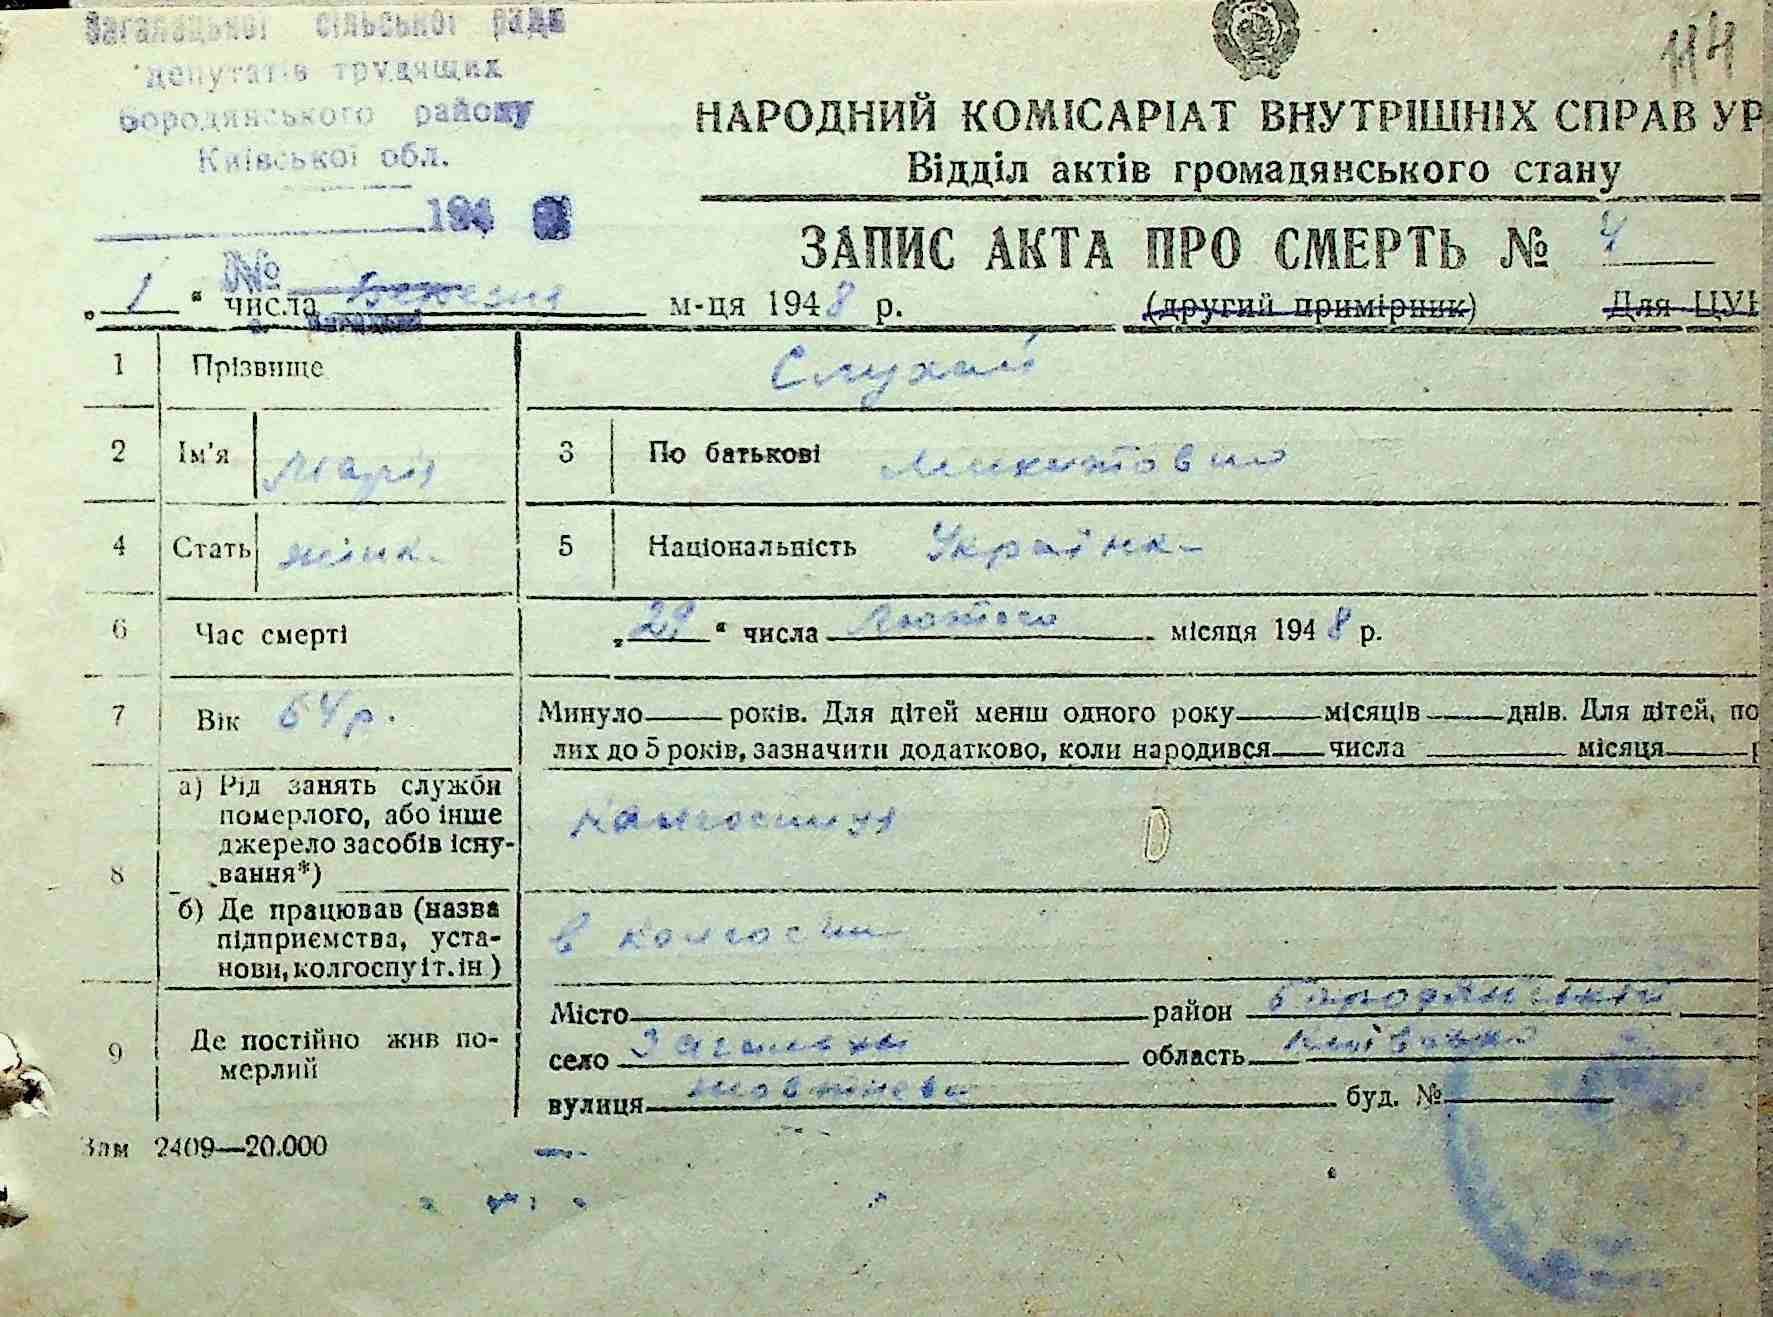 Загальцької сільської ради
депутатів трудящих
Бородянського району
Київської обл.
194
№
114
НАРОДНИЙ КОМІСАРІАТ ВНУТРІШНІХ СПРАВ УР
Відділ актів громадянського стану
ЗАПИС АКТА ПРО СМЕРТЬ № 4
„ 1 " числа Березня м-ця 1948 р. (другий примірник) Для ЦУН
1 Прізвище Слухай
2 Ім'я Марія 3 По батькові Микитовна
4 Стать жінк. 5 Національність Українка
6 Час смерті „29" числа Лютого місяця 1948 р.
7 Вік 64 р. Минуло років. Для дітей менш одного року місяців днів. Для дітей, по
лих до 5 років, зазначити додатково, коли народився числа місяця р
8 а) Рід занять служби
померлого, або інше
джерело засобів існу-
вання*) колгоспниця
б) Де працював (назва
підприємства, уста-
нови, колгоспу і т. ін) в колгоспи
9 Де постійно жив по-
мерлий
Місто район Бородянський
село Загальці область Київська
вулиця буд. №
Зам 2409—20.000